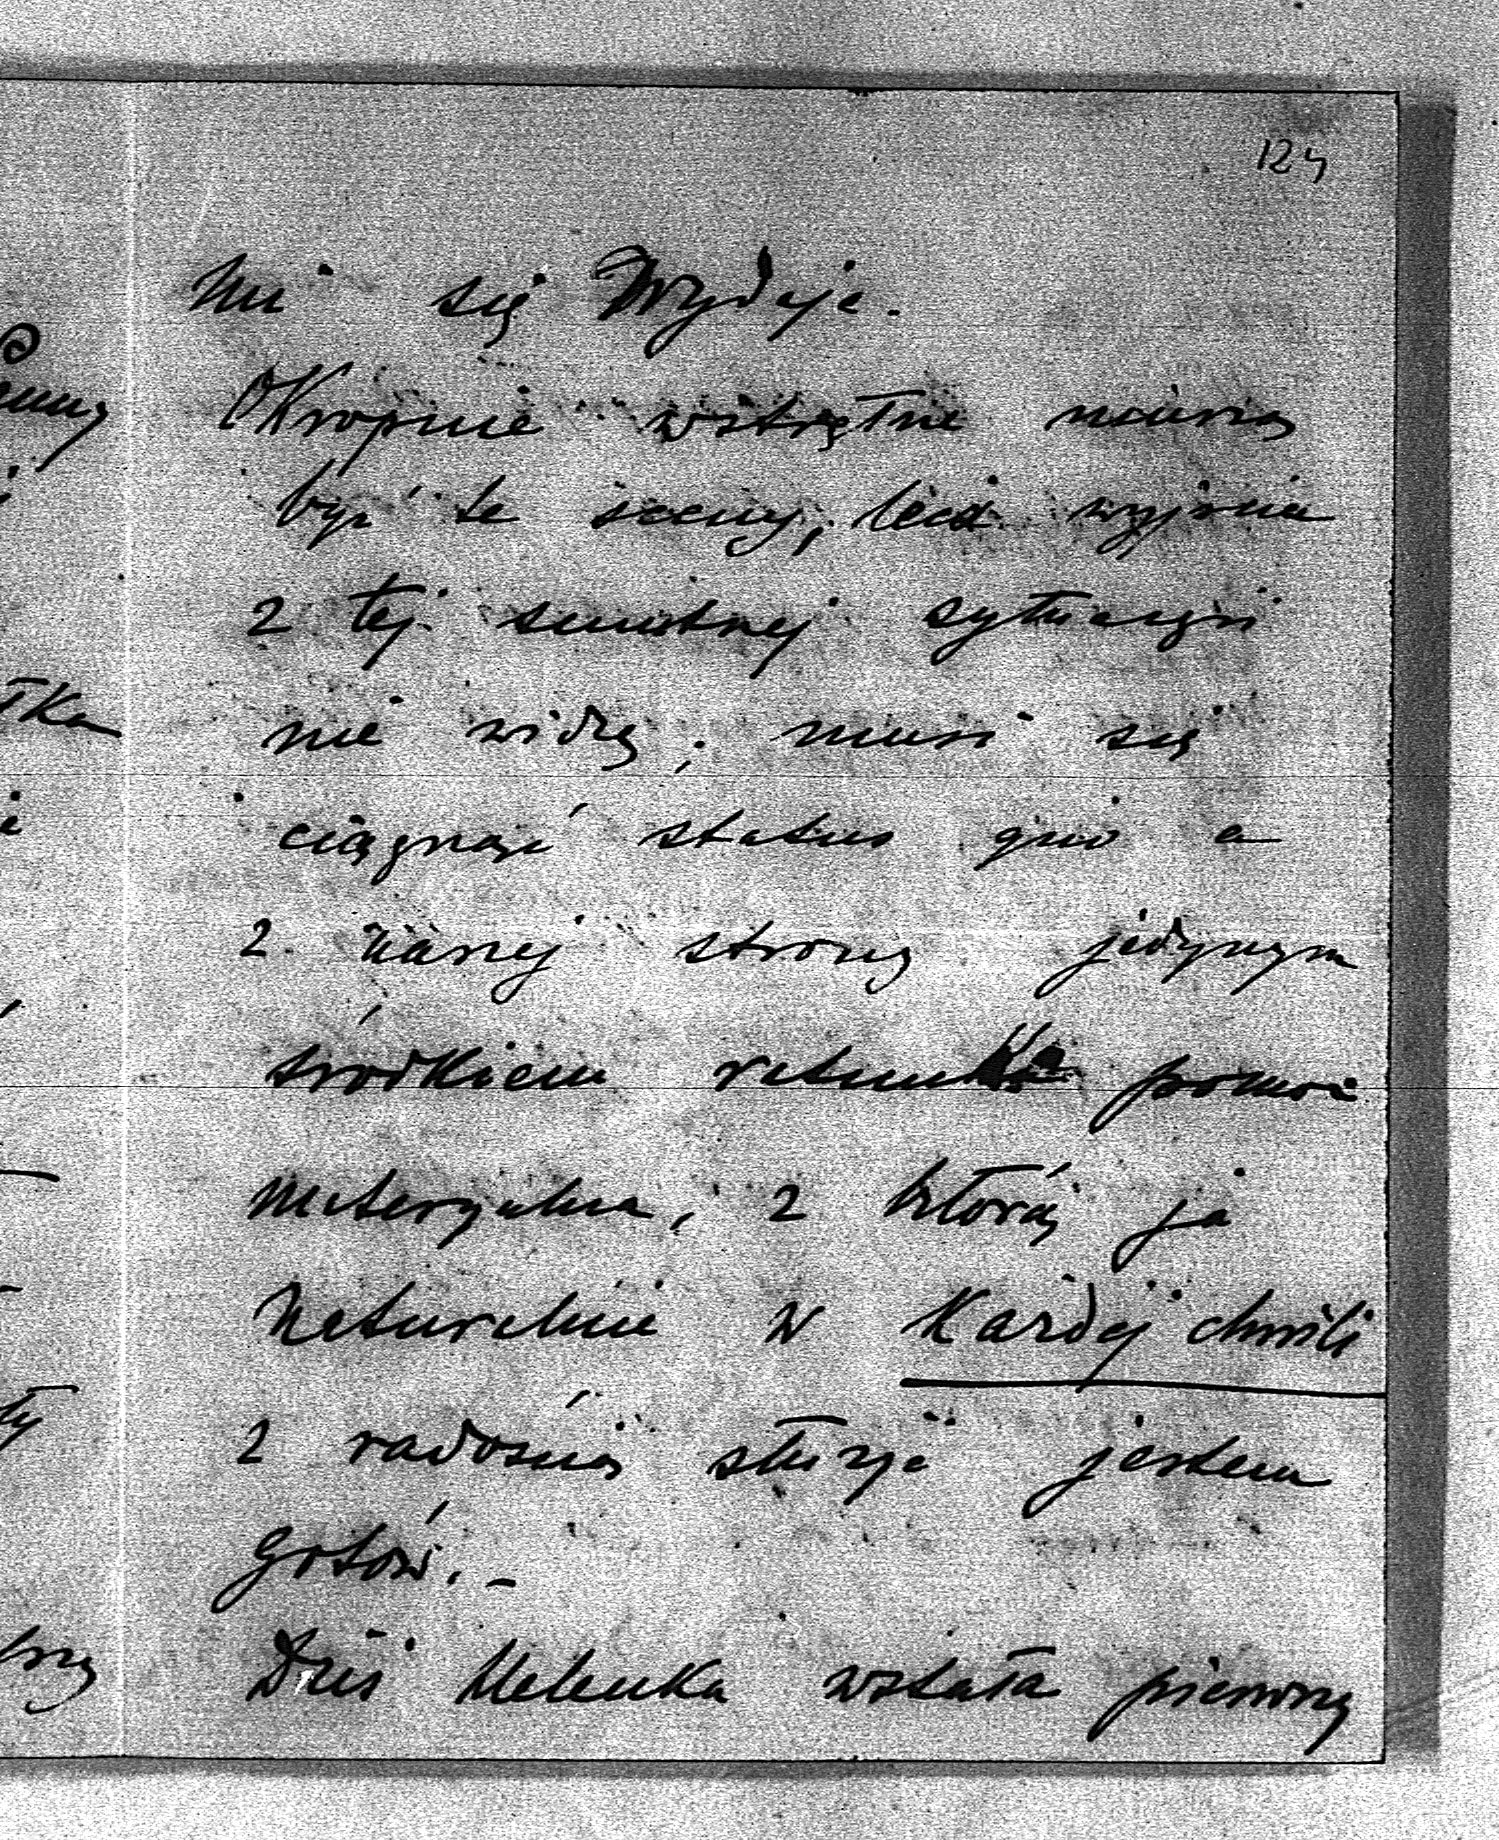 124
mi się wydaje.
Okropnie wstrętne muszą
być te sceny, lecz wyjścia
z tej smutnej sytuacyi
nie widzę; musi się
ciągnąć status quo a
z naszej strony jedynym
środkiem ratunku pomoc
materyalna, z którą ja
naturalnie w każdej chwili
z radością służyć jestem
gotów. –
Dziś Helenka wstała pierwszy